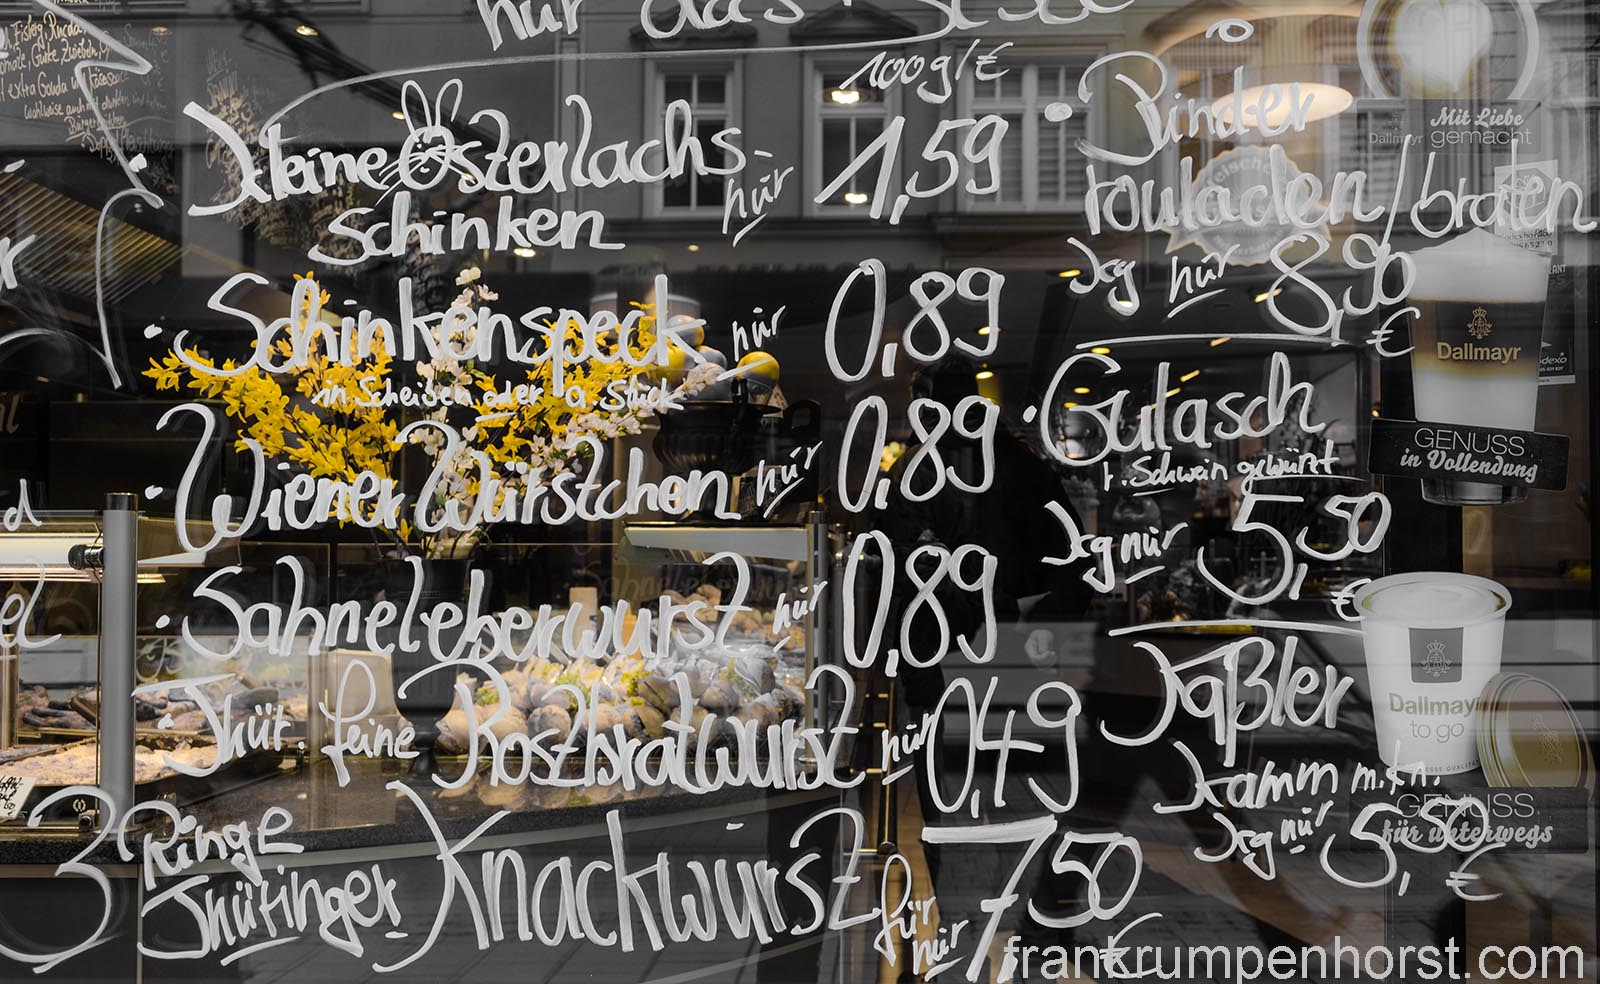 nur das Beste
100g/€
Kleine Osterlachs-
schinken
nur 1,59
· Schinkenspeck nur 0,89
in Scheiben oder a. Stück
· Wiener Würstchen nur 0,89
· Sahneleberwurst nur 0,89
· Thür. feine Rostbratwurst nur 0,49
3 Ringe
Thüringer Knackwurst für
nur 7,50
€
· Rinder
rouladen/braten
kg nur 8,90
€
· Gulasch
v. Schwein gewürzt
kg nur 5,50
€
Kaßler
Kamm m. Kn.
kg nur 5,50
€
Mit Liebe
gemacht
Dallmayr
Dallmayr
GENUSS
in Vollendung
Dallmayr
to go
GENUSS
für unterwegs
frankrumpenhorst.com